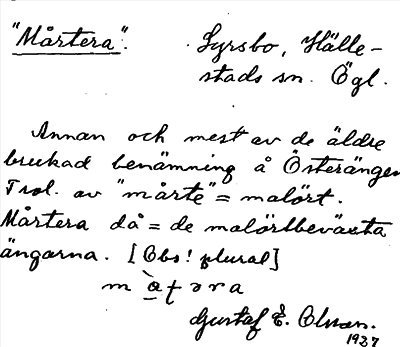 "Mårtera".
Syrsbo, Hälle-
stads sn. Ögl.
Annan och mest av de äldre
brukad benämning å Österängen
Trol. av "mårte" = malört.
Mårtera då = de malörtbeväxta
ängarna. [Obs! plural]
Gustaf E. Olsson.
1937